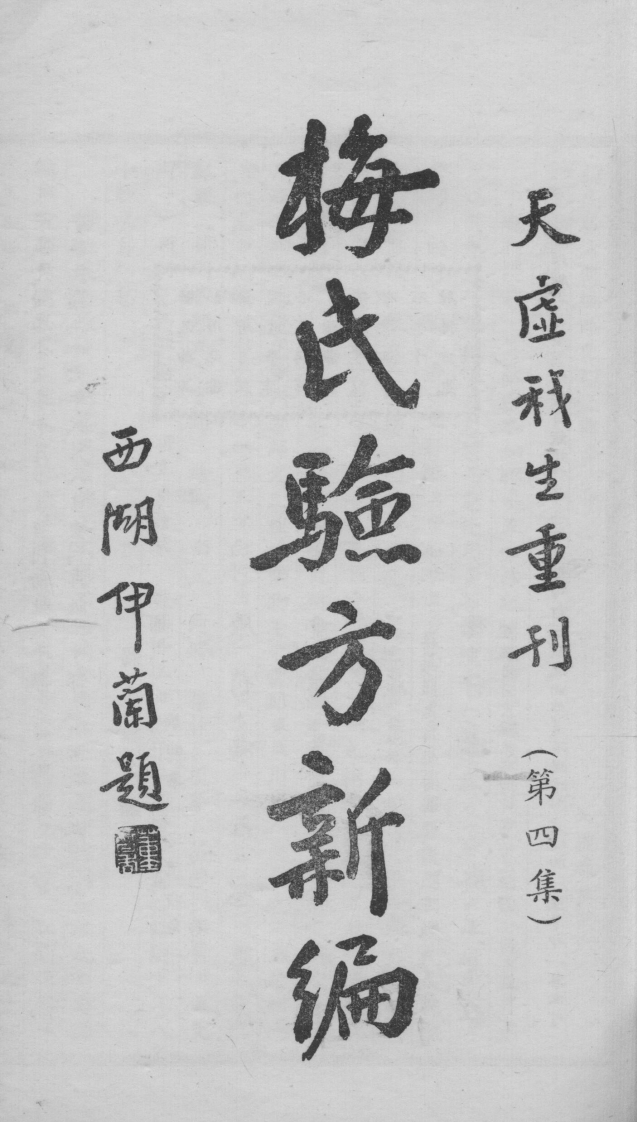 天虛我生重刊 (第四集)
梅氏驗方新編
西湖伊蘭題